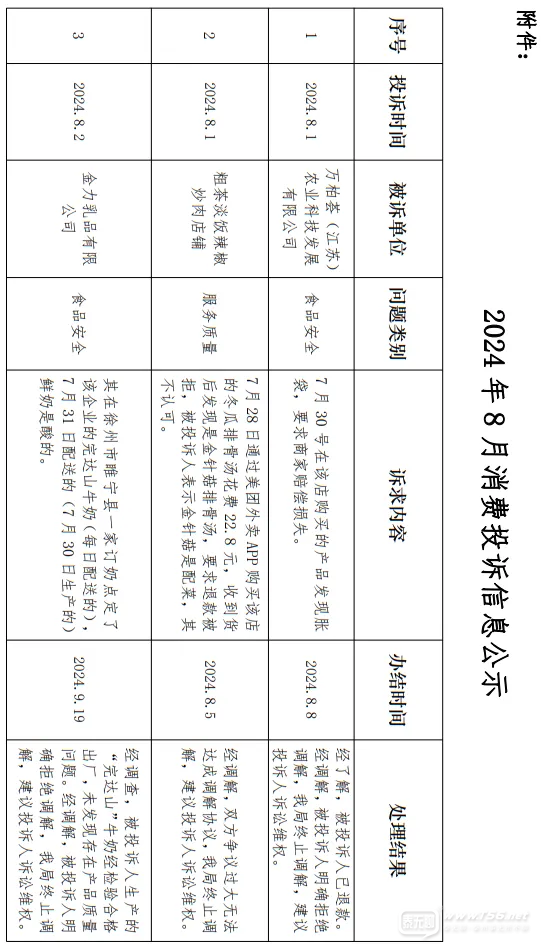 附件：
2024 年 8 月消费投诉信息公示
序号
投诉时间
被诉单位
问题类别
诉求内容
办结时间
处理结果
1
2024.8.1
万柏荟（江苏）
农业科技发展
有限公司
食品安全
7 月 30 号在该店购买的产品发现胀
袋，要求商家赔偿损失。
2024.8.8
经了解，被投诉人已退款。
经调解，被投诉人明确拒绝
调解，我局终止调解，建议
投诉人诉讼维权。
2
2024.8.1
粗茶淡饭辣椒
炒肉店铺
服务质量
7 月 28 日通过美团外卖 APP 购买该店
的冬瓜排骨汤花费 22.8 元，收到货
后发现是金针菇排骨汤，要求退款被
拒，被投诉人表示金针菇是配菜，其
不认可。
2024.8.5
经调解，双方争议过大无法
达成调解协议，我局终止调
解，建议投诉人诉讼维权。
3
2024.8.2
金力乳品有限
公司
食品安全
其在徐州市睢宁县一家订奶点定了
该企业的完达山牛奶（每日配送的），
7 月 31 日配送的（7 月 30 日生产的）
鲜奶是酸的。
2024.9.19
经调查，被投诉人生产的
“完达山”牛奶经检验合格
出厂，未发现存在产品质量
问题。经调解，被投诉人明
确拒绝调解，我局终止调
解，建议投诉人诉讼维权。
www.756.net